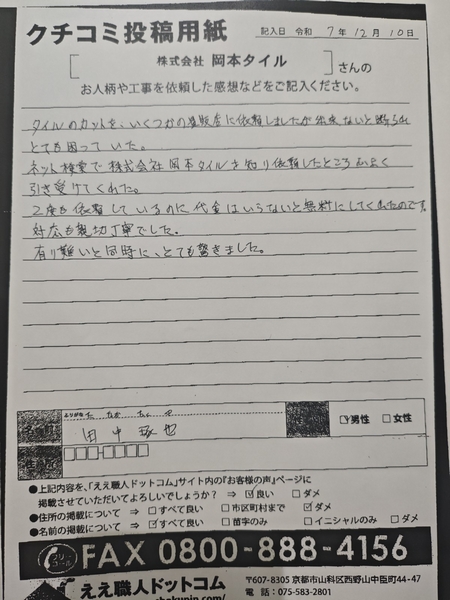 クチコミ投稿用紙
記入日 令和 7年 12月 10日
株式会社 岡本タイル さんの
お人柄や工事を依頼した感想などをご記入ください。
タイルのカットを、いくつかの量販店に依頼しましたが出来ないと断られ
とても困っていた。
ネット検索で株式会社岡本タイルを知り依頼したところ心よく
引き受けてくれた。
2度も依頼しているのに代金はいらないと無料にしてくれたのです。
対応も親切丁寧でした。
有り難いと同時に、とても驚きました。
ふりがな たなか たくや
田中 琢也
☑男性 □女性
●上記内容を、「ええ職人ドットコム」サイト内の『お客様の声』ページに
掲載させていただいてよろしいでしょうか? ⇒ ☑良い □ダメ
●住所の掲載について ⇒ □すべて良い □市区町村まで ☑ダメ
●名前の掲載について ⇒ ☑すべて良い □苗字のみ □イニシャルのみ □ダメ
フリーコール FAX 0800-888-4156
ええ職人ドットコム
〒607-8305 京都市山科区西野山中臣町44-47
電話:075-583-2801